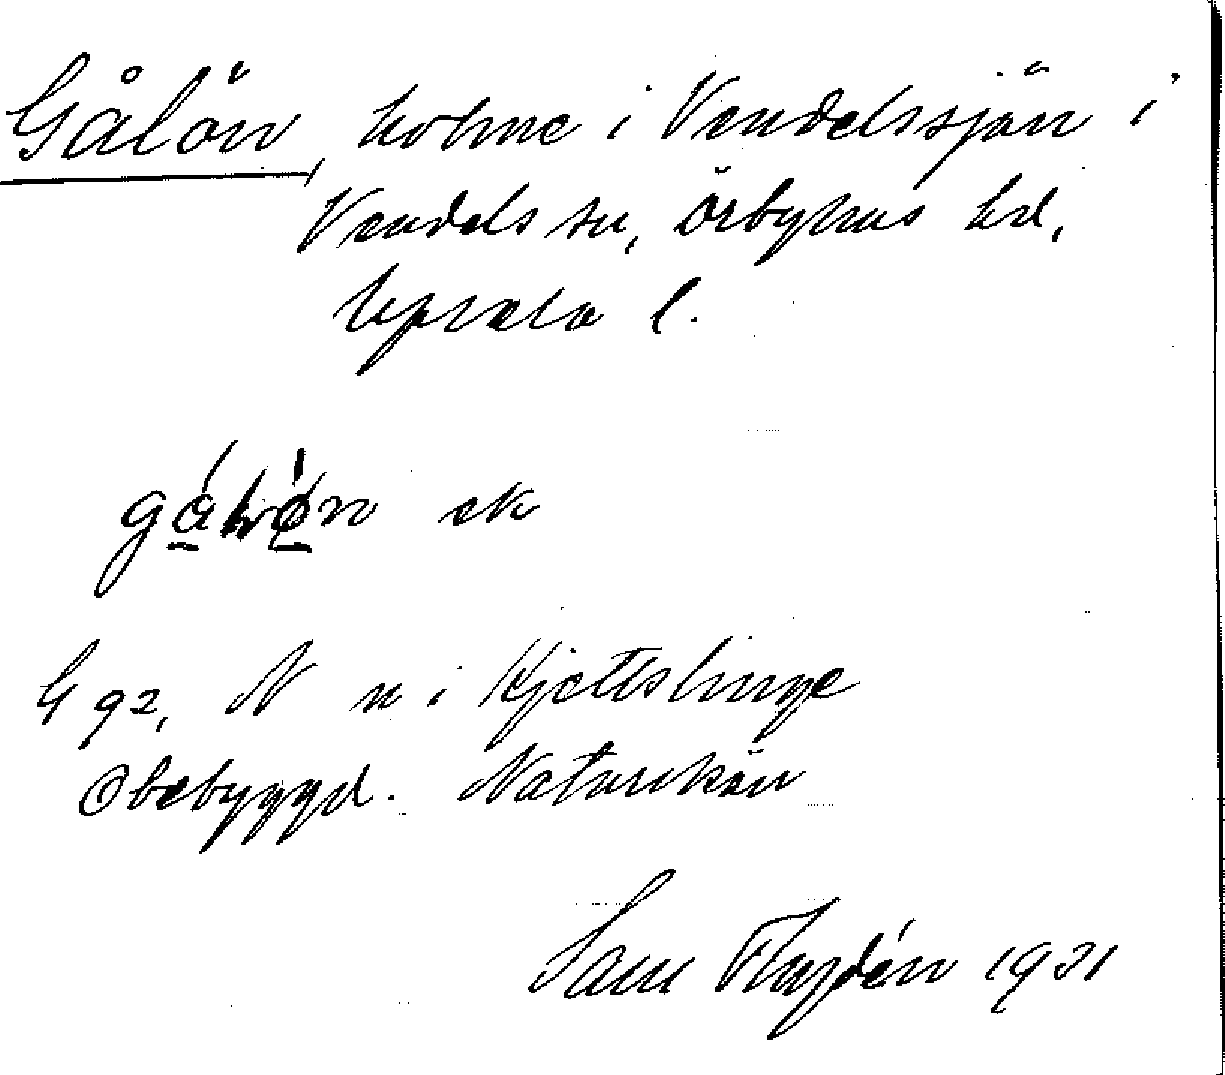 Gålön, holme i Vendelssjön i
Vendels sn, Örbyhus hd,
Upsala l.
ek
G 92, N n i Kjettslinge
Obebyggd. Naturskön
Sam Flodén 1931